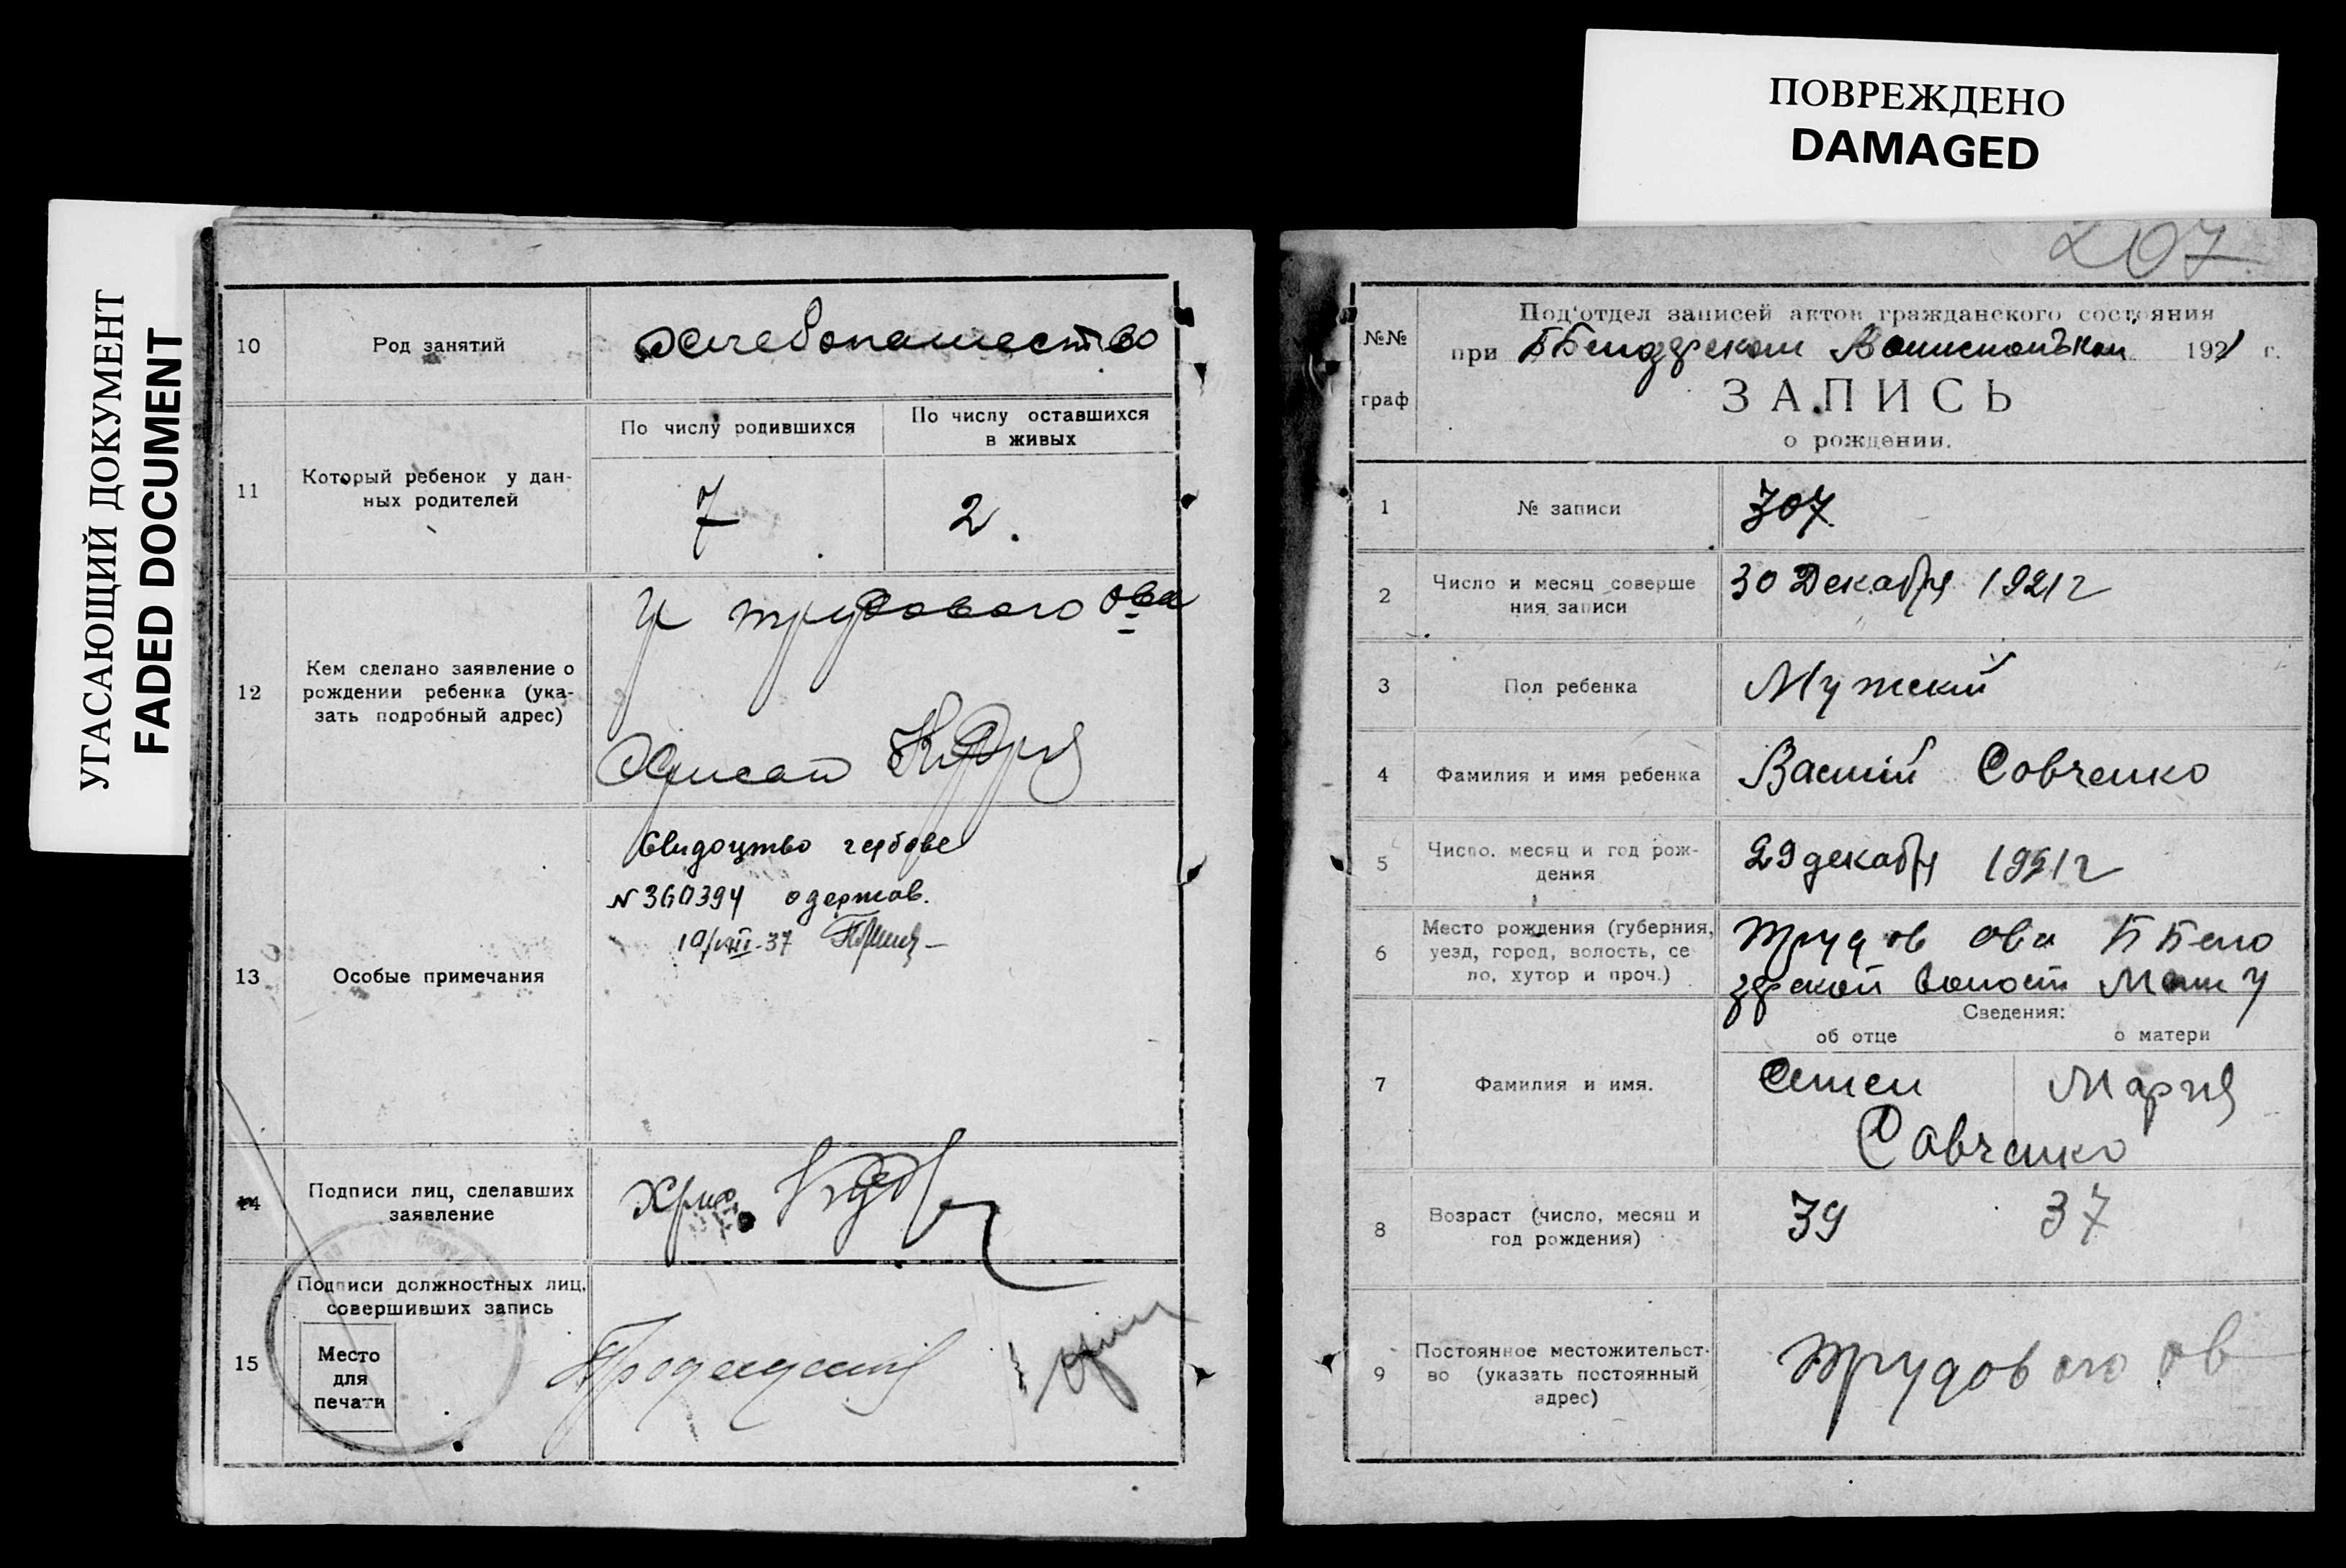 УГАСАЮЩИЙ ДОКУМЕНТ
FADED DOCUMENT
ПОВРЕЖДЕНО
DAMAGED
10 Род занятий хлебопашество
11 Который ребенок у дан-
ных родителей
По числу родившихся
По числу оставшихся
в живых
7 2.
12 Кем сделано заявление о
рождении ребенка (ука-
зать подробный адрес)
трудового ова
13 Особые примечания
Свидоцтво гербове
№ 360394 одержав.
10/VIII-37
14 Подписи лиц, сделавших
заявление
15 Подписи должностных лиц,
совершивших запись
Место
для
печати
207
№№
граф
Под'отдел записей актов гражданского состояния
при 1921 г.
ЗАПИСЬ
о рождении.
1 № записи 307
2 Число и месяц соверше
ния записи
30 Декабря 1921 г
3 Пол ребенка Мужский
4 Фамилия и имя ребенка Василий Совченко
5 Число, месяц и год рож-
дения
29 декабря 1921 г
6 Место рождения (губерния,
уезд, город, волость, се
ло, хутор и проч.)
Трудов ова Б Бело
зерской волости
Сведения:
об отце о матери
7 Фамилия и имя.
Семен Мария
Савченко
8 Возраст (число, месяц и
год рождения)
39 37
9 Постоянное местожительст-
во (указать постоянный
адрес)
Трудового ов